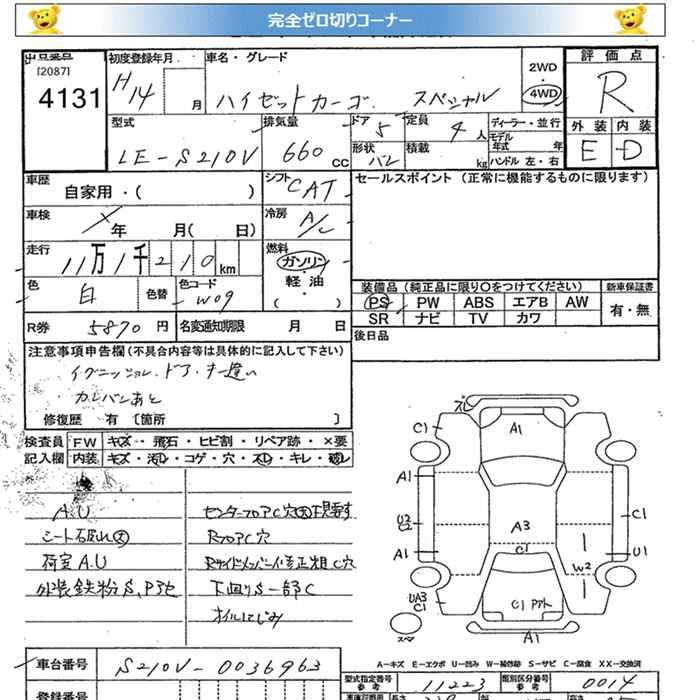 完全ゼロ切りコーナー
出品番号
[2087]
4131
初度登録年月
H14
月
車名・グレード
ハイゼットカーゴ スペシャル
2WD
4WD
評価点
R
型式
LE-S210V
排気量
660 cc
ドア
5
定員
4人
形状
バン
積載
kg
ディーラー・並行
モデル年式 年
ハンドル 左・右
外装 内装
E D
車歴
自家用・( )
シフト
CAT
セールスポイント (正常に機能するものに限ります)
車検
年 月( 日)
冷房
A/C
走行
11万1千210km
燃料
ガソリン
軽油
( )
色
白
色替
色コード
W09
装備品 (純正品に限り○をつけてください)
新車保証書
PS PW ABS エアB AW
SR ナビ TV カワ
有・無
R券
5870円
名変通知期限 月 日
後日品
注意事項申告欄(不具合内容等は具体的に記入して下さい)
イグニッション、ドア、キー違い
カンバンあと
修復歴 有 [箇所 ]
検査員
記入欄
FW キズ・飛石・ヒビ割・リペア跡・×要
内装 キズ・汚レ・コゲ・穴・スレ・キレ・破レ
A.U
シート破れ大
荷室A.U
外装鉄粉S、P
センターフロアC穴大
RフロアC穴
RサイドメンバーC穴
下回りS一部C
オイルにじみ
ズレ
C1
A1
A1
U3
C2
A3
C1
C1
A1
U1
W2
UA3
C1
C1
A1
A-キズ E-エクボ U-凹み W-補修跡 S-サビ C-腐食 XX-交換済
車台番号
S210V-0036963
型式指定番号
参考
11223
類別区分番号
参考
0014
登録番号